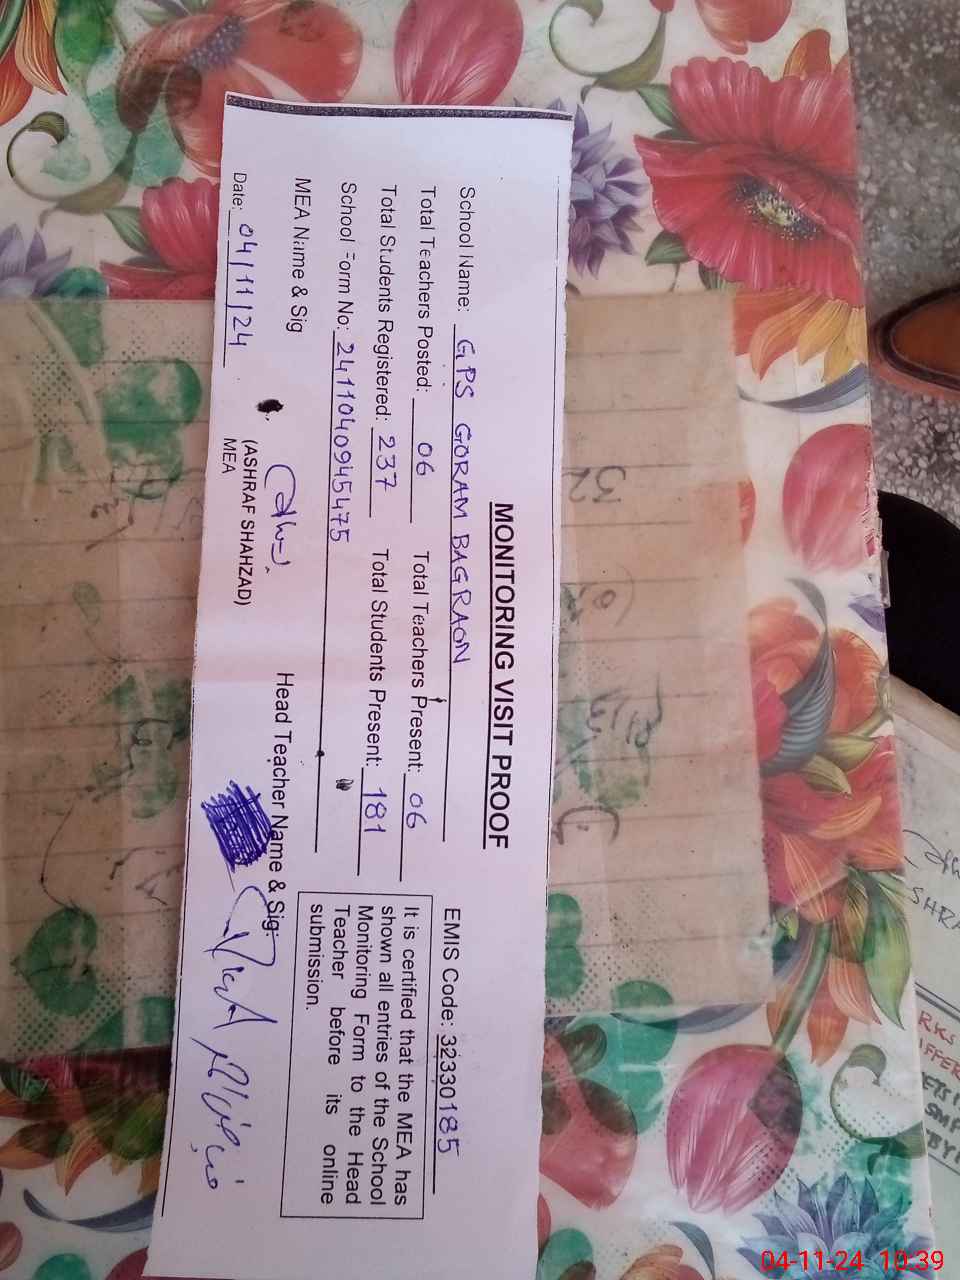 MONITORING VISIT PROOF
School Name: GPS GORAM BAGRAON EMIS Code: 32330185
Total Teachers Posted: 06 Total Teachers Present: 06
Total Students Registered: 237 Total Students Present: 181
School Form No: 241104094 5475
It is certified that the MEA has
shown all entries of the School
Monitoring Form to the Head
Teacher before its online
submission.
MEA Name & Sig Head Teacher Name & Sig:
(ASHRAF SHAHZAD)
MEA
Date: 04/11/24
32
04-11-24 10:39